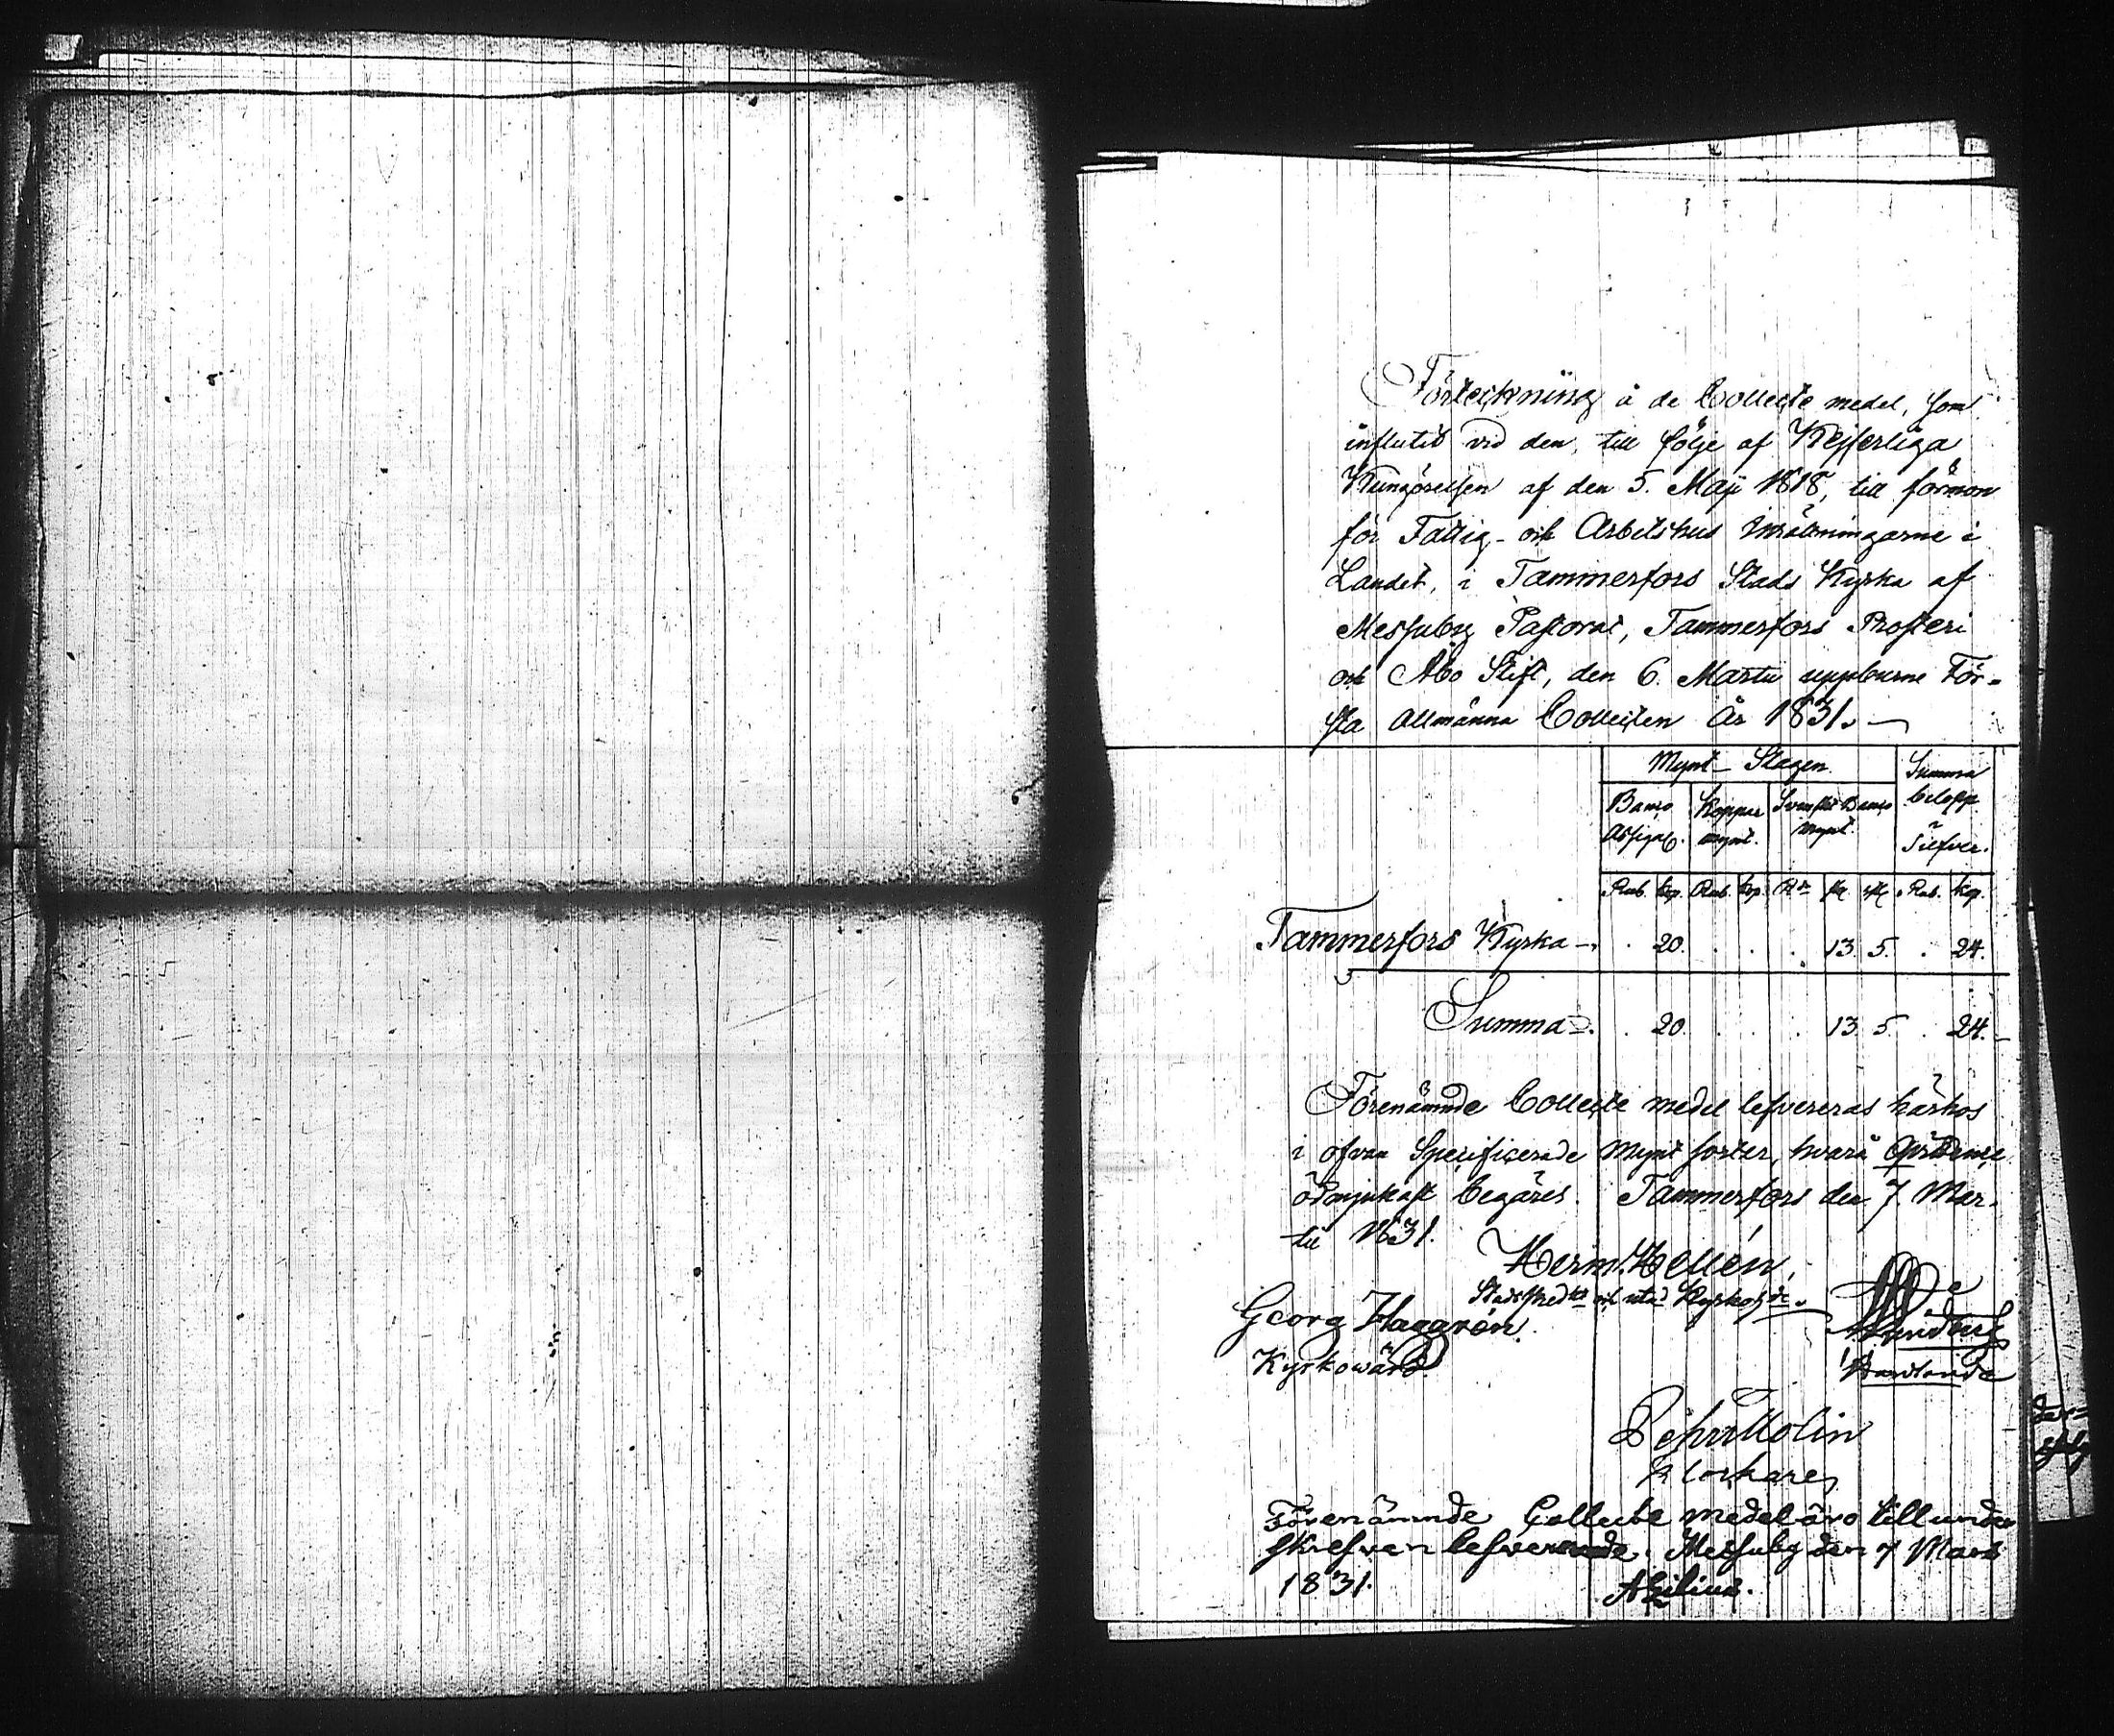 Förteckning å de Collecte medel, som
influtit vid den, till följe af Kejserliga
Kungörelsen af den 5. Maji 1818, till förmon
för Fattig- och Arbetshus Inrätningarne i
Landet, i Tammerfors Stads Kyrka af
Messuby Pastorat, Tammerfors Prosteri
och Åbo Stift, den 6. Martii uppburne För-
sta allmänna Collecten År 1831.
Mynt-Slagen. Summa
Banco Koppar Svenskt Banco belopp
Assignr. mynt. mynt. i
Silfver.
Rub. kop. Rub. kop. Rdr sk. rst. Rub. kop.
Tammerfors Kyrka 20. 13. 5. 24.
Summa 20. 13. 5. 24.
Förenämnde Collecte medel lefvereras härhos
i ofvan Specificerade Mynt sorter, hvarå
ödmjukast begäres. Tammerfors den 7. Mar-
tii 1831.
Herm. Hellén,
Georg Haggrén.
Kyrkowärd.
Pehr Molin
Klockare
Förenämnde Collecte medel äro till under
skrefven lefvererade. Messuby den 7 Mart
1831.